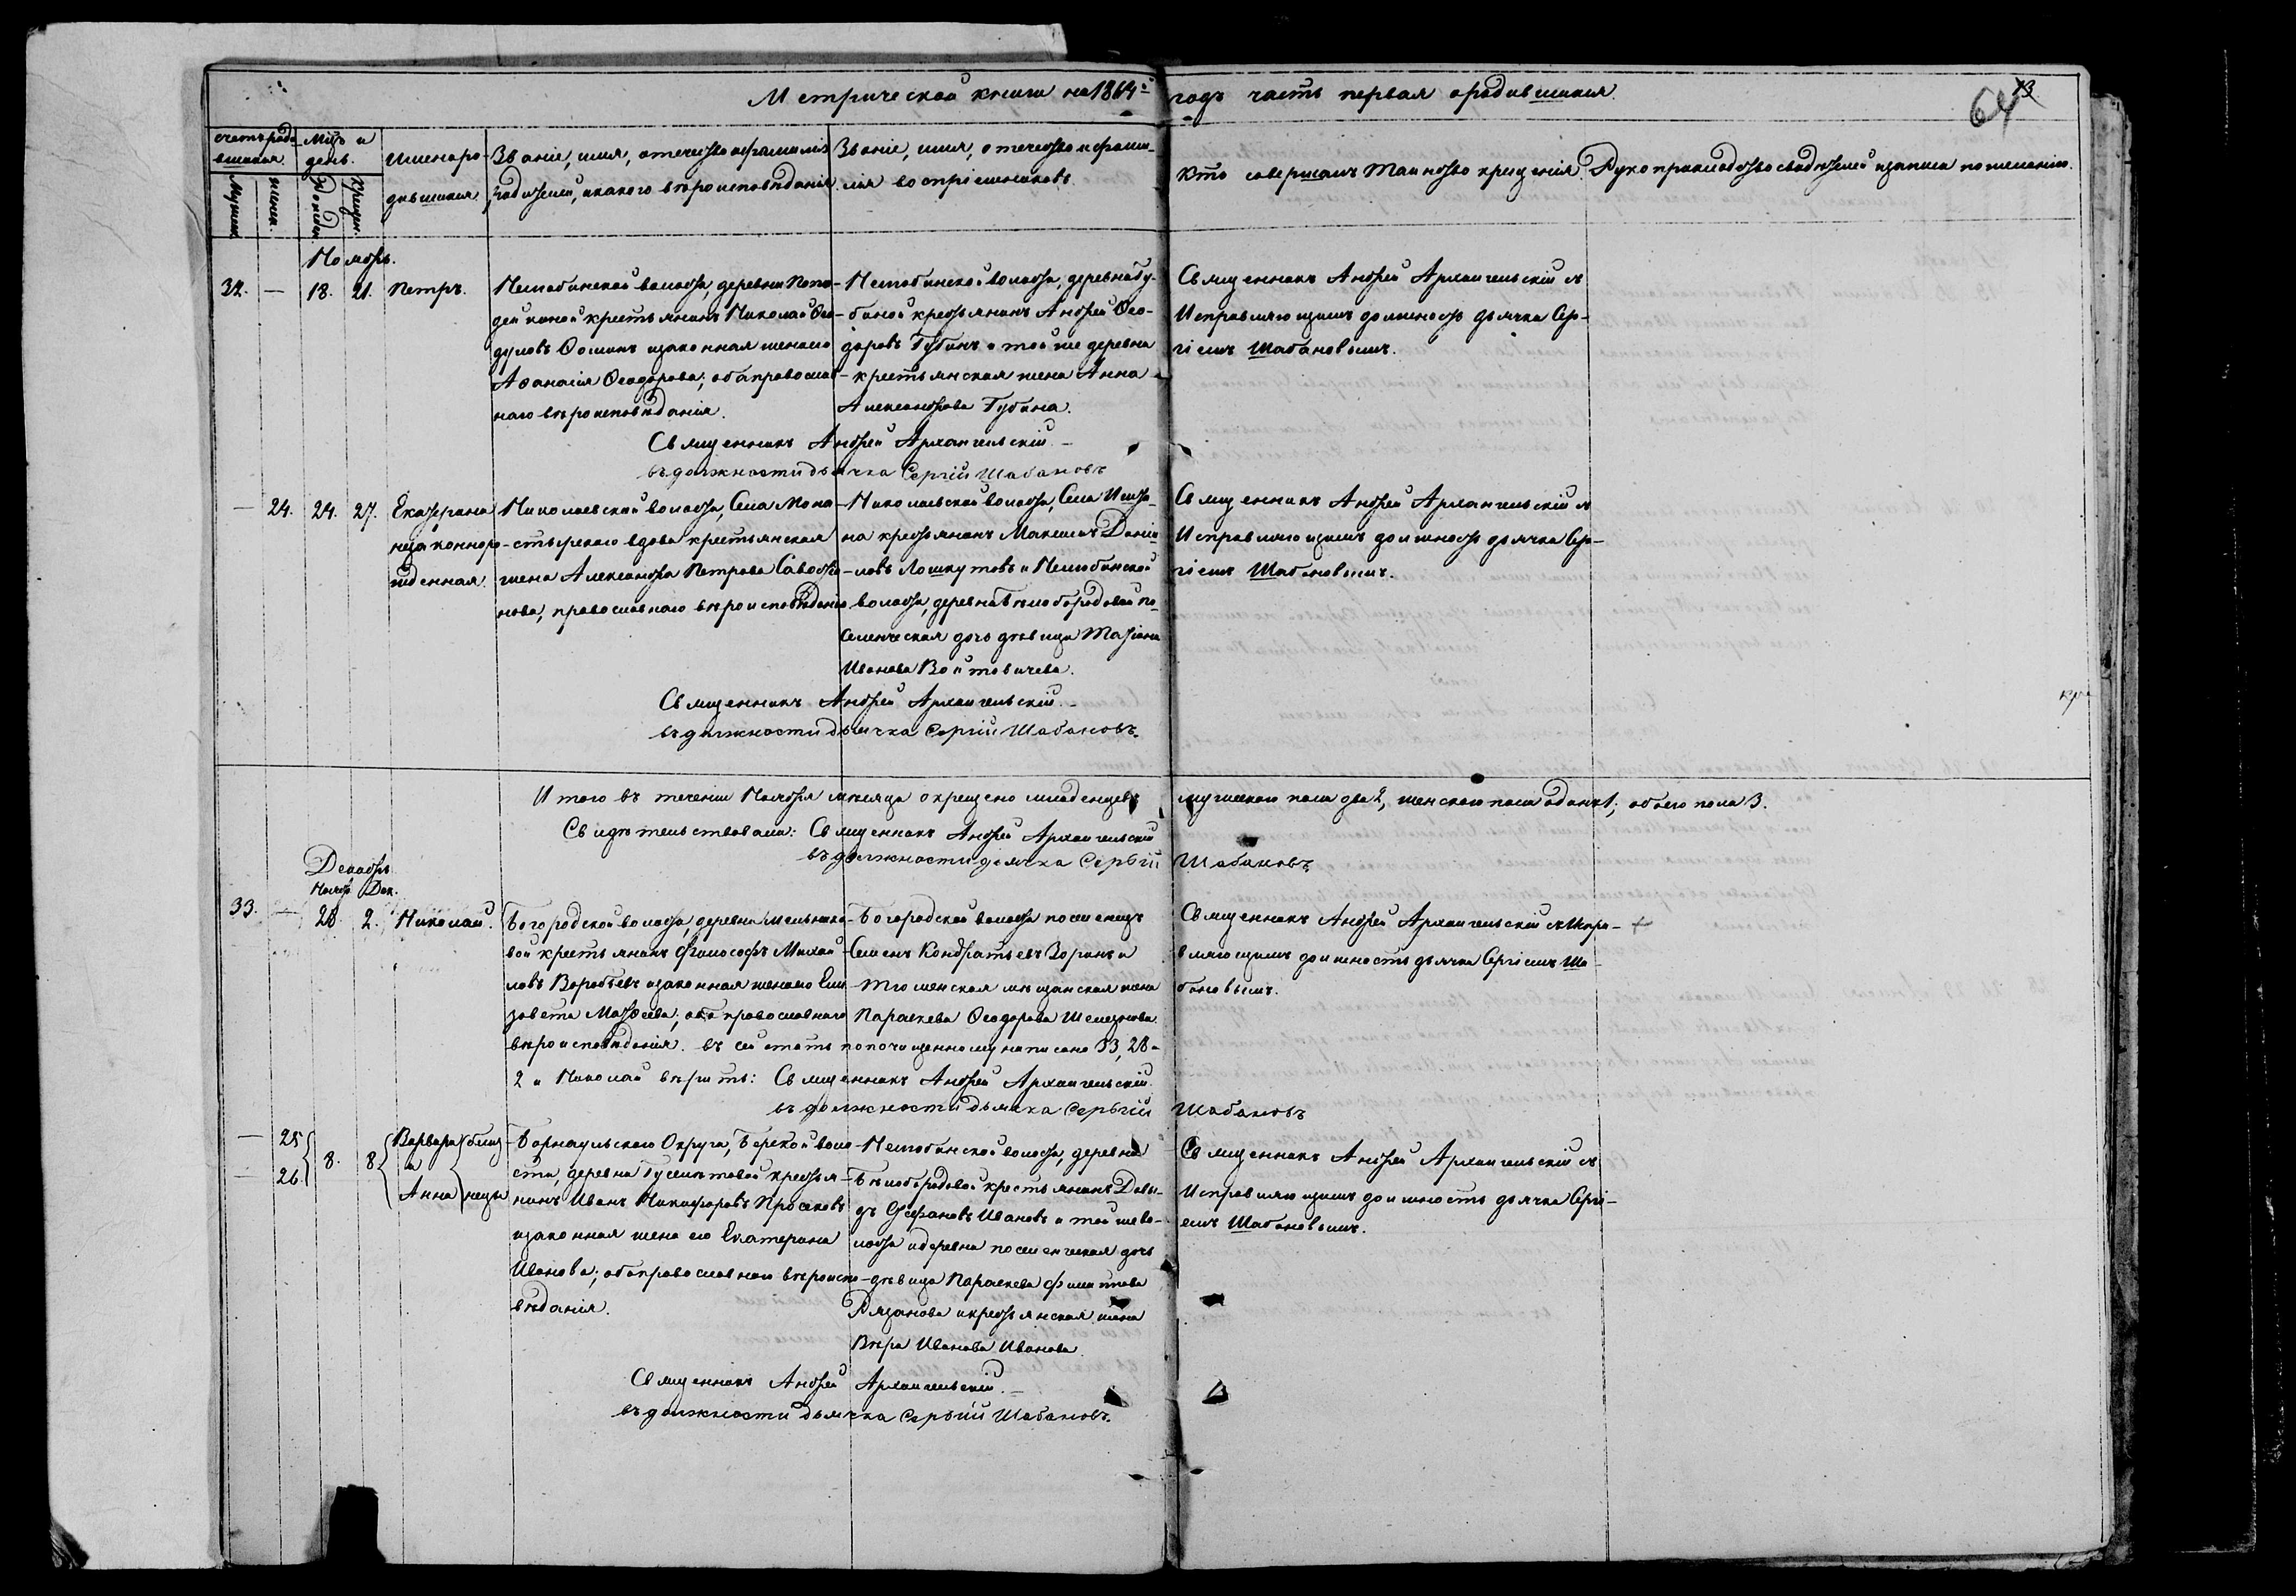 Метрической книги на 1864й годъ часть первая о родившихся.
64 73
Счетъ родившихся.
Мужеска
женск.
Мцъ и день.
Рожден
Крещен.
Имена родившихся
Званіе, имя, отечество и фамилія родителей, и какого вѣроисповѣданія
Званіе, имя, отечество и фамилія воспріемниковъ
Кто совершалъ Таинство крещенія.
Рукоприкладство свидѣтелей записи по желанію.
Ноябрь.
32. — 18. 21. Петръ.
волости, деревни
крестьянинъ Николай Ѳео-
дуловъ Ѳоминъ и законная жена его
Аѳанасія Ѳеодорова; оба православ-
наго вѣроисповѣданія.
волости, деревни Гу-
биной крестьянинъ Андрей Ѳео-
доровъ Губинъ и той же деревни
крестьянская жена Анна
Александрова Губина.
Священникъ Андрей Архангельскій съ
Исправляющимъ должность дьячка Сер-
гіемъ Шабановымъ.
Священникъ Андрей Архангельскій.
въ должности дьячка Сергій Шабановъ
— 24. 24. 27. Екатерина
незаконноро-
жденная.
Николаевской волости, Села Мона-
стырскаго вдова крестьянская
жена Александра Петрова Савостья-
нова, православнаго вѣроисповѣданія
Николаевской волости, Села
на крестьянинъ Максимъ Дани-
ловъ Лошкутовъ и
волости, деревни Бѣлобородовой по-
селенческая дочь дѣвица Татіана
Иванова Войтовичева.
Священникъ Андрей Архангельскій съ
Исправляющимъ должность дьячка Сер-
гіемъ Шабановымъ.
Священникъ Андрей Архангельскій.
въ должности дьячка Сергій Шабановъ.
Итого въ теченіи Ноября мѣсяца окрещено младенцевъ мужескаго пола два 2, женскаго пола одинъ 1; обоего пола 3.
Свидѣтельствовали: Священникъ Андрей Архангельскій
въ должности дьячка Сергій Шабановъ
Декабрь
Ноябр. Дек.
33. — 28. 2. Николай.
Богородской волости, деревни Мельнико-
вой крестьянинъ Философъ Михай-
ловъ Воробьевъ и законная жена его Ели-
завета Матѳеева; оба православнаго
вѣроисповѣданія. въ сей статьѣ по почищенному написано 33, 28-
2 и Николай вѣрить: Священникъ Андрей Архангельскій.
въ должности дьячка Сергій Шабановъ
Богородской волости поселенецъ
Семенъ Кондратьевъ Зоринъ и
Тюменская мѣщанская жена
Параскева Ѳеодорова
Священникъ Андрей Архангельскій съ Испра-
вляющимъ должность дьячка Сергіемъ Ша-
бановымъ.
— 25
— 26
8. 8
Варвара
и
Анна
близ-
нецы
Барнаульскаго Округа, Бердской воло-
сти, деревни Гуселѣтовой крестья-
нинъ Иванъ Никифоровъ Просековъ
и законная жена его Екатерина
Иванова; оба православнаго вѣроиспо-
вѣданія.
волости, деревни
Бѣлобородовой крестьянинъ Давы-
дъ Стефановъ Ивановъ и той же во-
лости и деревни поселенческая дочь
дѣвица Параскева Филиппова
Рязанова и крестьянская жена
Вѣра Иванова Иванова.
Священникъ Андрей Архангельскій съ
Исправляющимъ должность дьячка Сергі-
емъ Шабановымъ.
Священникъ Андрей Архангельскій.
въ должности дьячка Сергій Шабановъ.